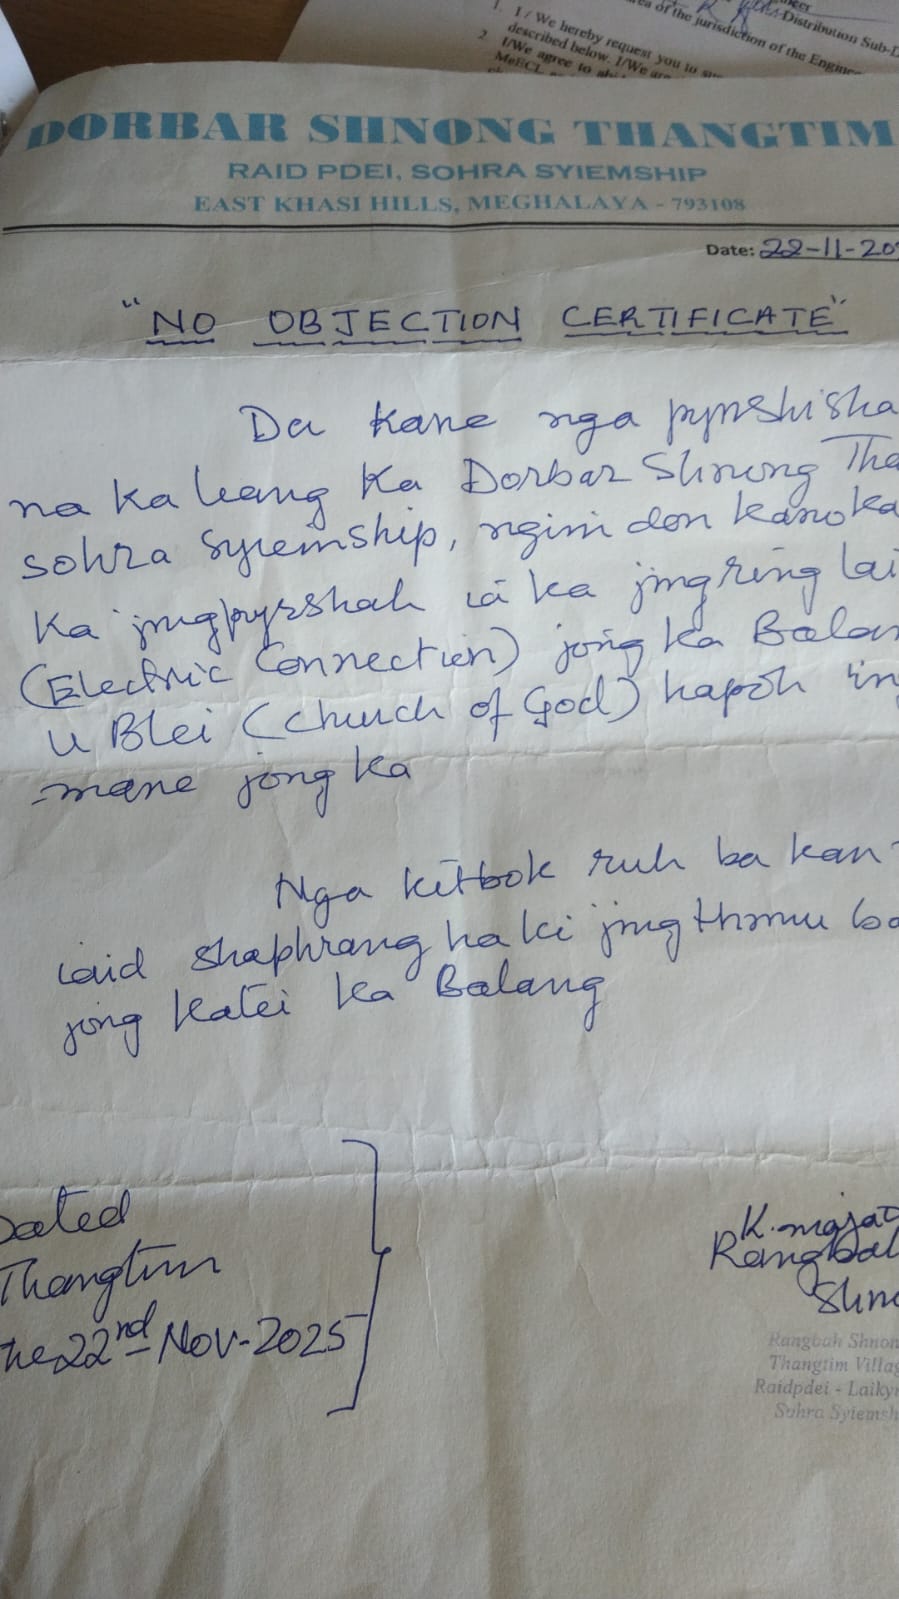 1. I / We hereby request you to
described below. I/We are
2. I/We agree to
MeECL
Distribution Sub-D
area of the jurisdiction of the Engineer
DORBAR SHNONG THANGTIM
RAID PDEI, SOHRA SYIEMSHIP
EAST KHASI HILLS, MEGHALAYA - 793108
Date: 22-11-20
"NO OBJECTION CERTIFICATE"
Da kane nga pynshisha
na ka liang ka Dorbar Shnong Tha
Sohra Syiemship, ngim don kano ka
ka jingpyrshah ïa ka jingring lai
(Electric Connection) jong ka Balan
U Blei (Church of God) hapoh in
-mane jong ka
Nga kitbok ruh ba kan
ïaid shaphrang ha ki jingthmu ba
jong katei ka Balang
Dated
Thangtim
The 22nd Nov-2025
K. 
Rangbah
Shno
Rangbah Shnon
Thangtim Villag
Raidpdei - Laiky
Sohra Syiemsh